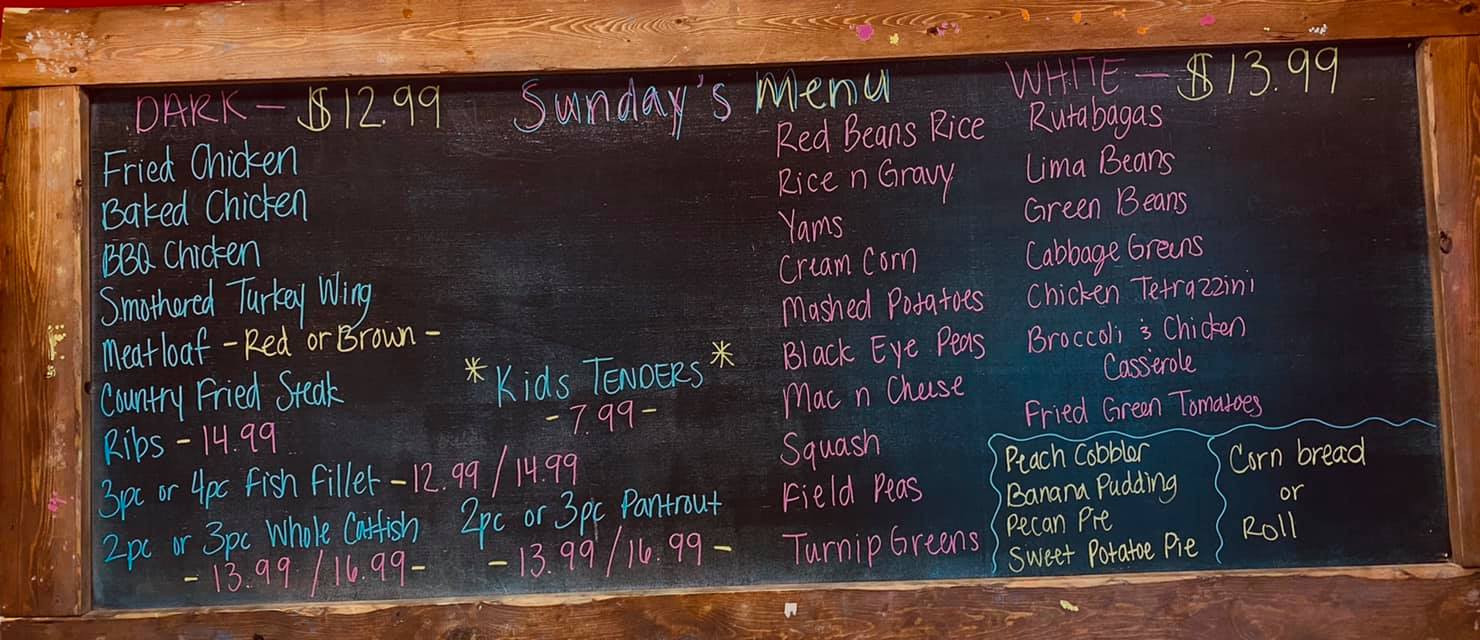 Sunday's Menu
DARK — $12.99
WHITE — $13.99
Fried Chicken
Baked Chicken
BBQ Chicken
Smothered Turkey Wing
Meatloaf - Red or Brown -
Country Fried Steak
Ribs - 14.99
3pc or 4pc Fish Fillet - 12.99 / 14.99
2pc or 3pc Whole Catfish
- 13.99 / 16.99 -
* Kids TENDERS *
- 7.99 -
2pc or 3pc Pantrout
- 13.99 / 16.99 -
Red Beans Rice
Rice n Gravy
Yams
Cream Corn
Mashed Potatoes
Black Eye Peas
Mac n Cheese
Squash
Field Peas
Turnip Greens
Rutabagas
Lima Beans
Green Beans
Cabbage Greens
Chicken Tetrazzini
Broccoli & Chicken
Casserole
Fried Green Tomatoes
Peach Cobbler
Banana Pudding
Pecan Pie
Sweet Potatoe Pie
Corn bread
or
Roll